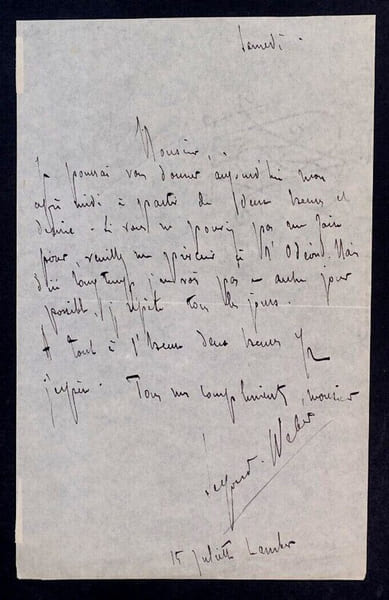 Samedi.
Monsieur,
Je pourrai vous donner aujourd'hui mon
après midi à partir de deux heures et
demie. Si vous ne pouvez pas me faire
, veuillez me prévenir à l'Odéon. Mais
d'ici longtemps je ne vois pas un autre jour
possible, je répète tous les jours.
A tout à l'heure deux heures 1/2
j'espère. Tous mes compliments, monsieur
Segond-Weber
15 Juliette Lamber